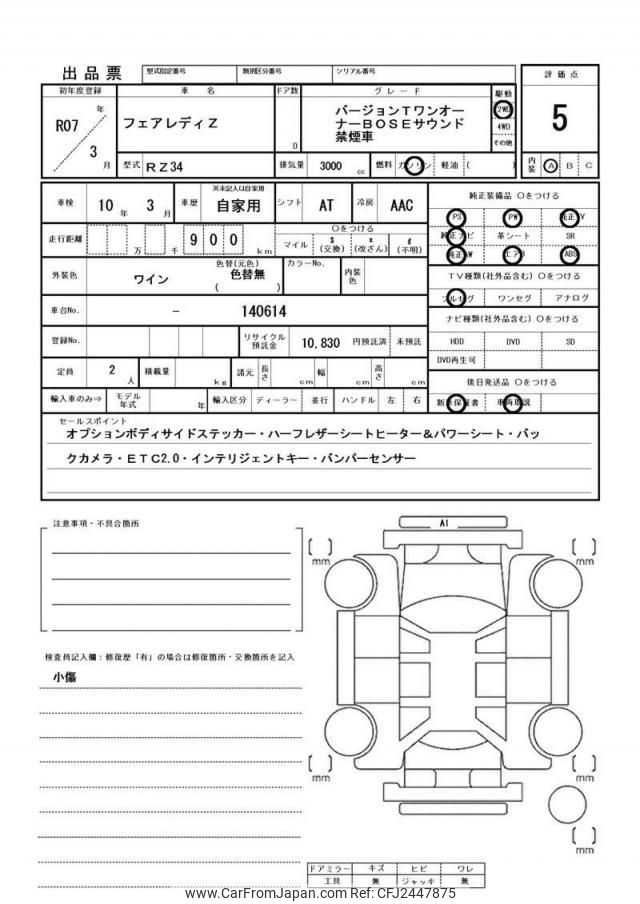 出品票
型式指定番号 類別区分番号 シリアル番号
評価点
初年度登録 車名 ドア数 グレード 駆動
R07 年 3 月
フェアレディZ
D
バージョンTワンオー
ナーBOSEサウンド
禁煙車
2WD
4WD
その他
5
型式 RZ34 排気量 3000 cc 燃料 ガソリン 軽油 ( )
内装 A B C
車検 10 年 3 月 車歴 ※未記入は自家用 自家用 シフト AT 冷房 AAC
純正装備品 Oをつける
PS PW 純正TV
純正ナビ 革シート SR
純正AW エアB ABS
走行距離 万 千 900 km
Oをつける
マイル $(交換) *(改ざん) #(不明)
外装色 ワイン 色替(元色) 色替無 ( ) カラーNo. 内装色
TV種類(社外品含む) Oをつける
フルセグ ワンセグ アナログ
車台No. － 140614
ナビ種類(社外品含む) Oをつける
HDD DVD SD
DVD再生可
登録No. リサイクル預託金 10,830 円預託済 未預託
定員 2 人 積載量 kg 諸元 長さ cm 幅 cm 高さ cm
後日発送品 Oをつける
新車保証書 車両取説
輸入車のみ⇒ モデル年式 年 輸入区分 ディーラー 並行 ハンドル 左 右
セールスポイント
オプションボディサイドステッカー・ハーフレザーシートヒーター＆パワーシート・バッ
クカメラ・ETC2.0・インテリジェントキー・バンパーセンサー
注意事項・不具合箇所
A1
[ ] mm
[ ] mm
検査員記入欄：修復歴「有」の場合は修復箇所・交換箇所を記入
小傷
[ ] mm
[ ] mm
[ ] mm
ドアミラー キズ ヒビ ワレ
工具 無 ジャッキ 無
www.CarFromJapan.com Ref: CFJ2447875